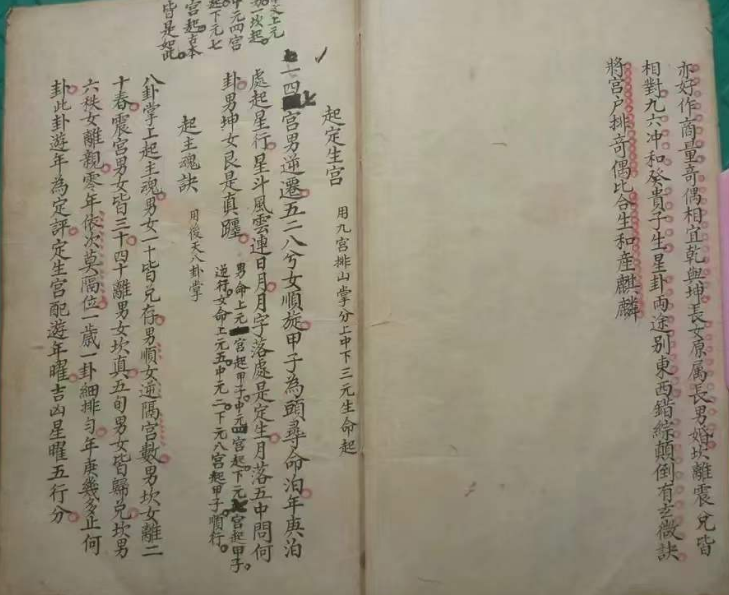 亦好作商量奇偶相宜乾與坤長女原属長男婚坎離震兌皆
相對九六冲和發貴子生星卦両途别東西錯綜顛倒有玄微訣
將宮户排奇偶比合生和産麒麟
上元
加一坎起
中元四宮
起下元七
宮起古本
皆是如此
起定生宮 用九宮排山掌分上中下三元生命起
一四七宮男逆遷五二八分女順旋甲子為頭尋命泊年與泊
處起星行星斗風雲連日月月字落處是定生月落五中問何
卦男坤女艮是真躔 男命上元一宮起甲子中元四宮起下元七宮起甲子
逆行女命上元五中元二下元八宮起甲子順行
起主魂訣 用後天八卦掌
八卦掌上起主魂男女一十皆兌存男順女逆隔宮數男坎女離二
十春震宮男女皆三十四十離男女坎真五旬男女皆歸兌坎男
六秩女離親零年依次莫隔位一歲一卦細排勻年庚幾多止何
卦此卦遊年為定評定生宮配遊年曜吉凶星曜五行分